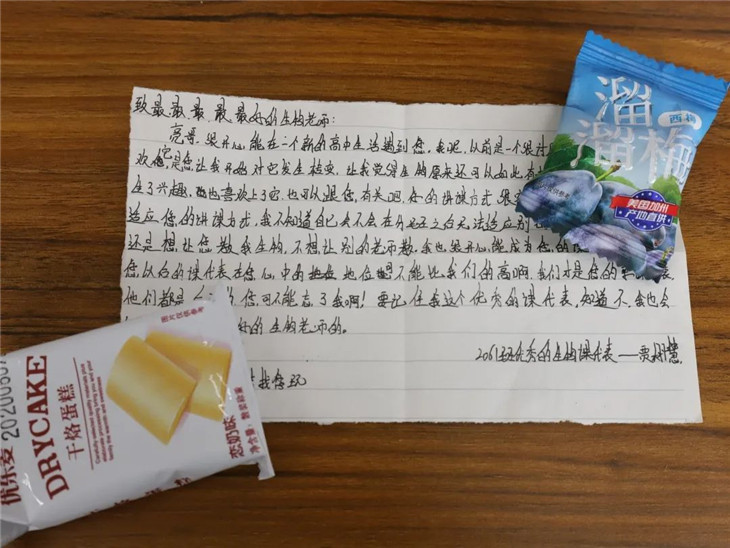 致最最最最最好的生物老师：
亮哥，很开心能在一个新的高中生活遇到您。我呢，以前是一个很讨
欢它，是您让我开始对它发生转变，让我觉得生物原来还可以如此有
生了兴趣，也喜欢上了它，也可以跟您有关吧，您的讲课方式，很
适应您的讲课方式，我不知道自己会不会在分班之后无法适应别
还是想让您教我生物，不想让别的老师教。我也很开心能成为您的
您，以后的课代表在您心中的地位不能比我们的高啊，我们才是您的
他们都是 您可不能忘了我啊！要记住我这个优秀的课代表，知道不，我也会
好的生物老师的。
206班优秀的生物课代表——贾
溜溜梅
西梅
美国加州
产地直供
图片仅供参考
优乐麦
20200807
DRYCAKE
干烙蛋糕
恋奶味
净含量：